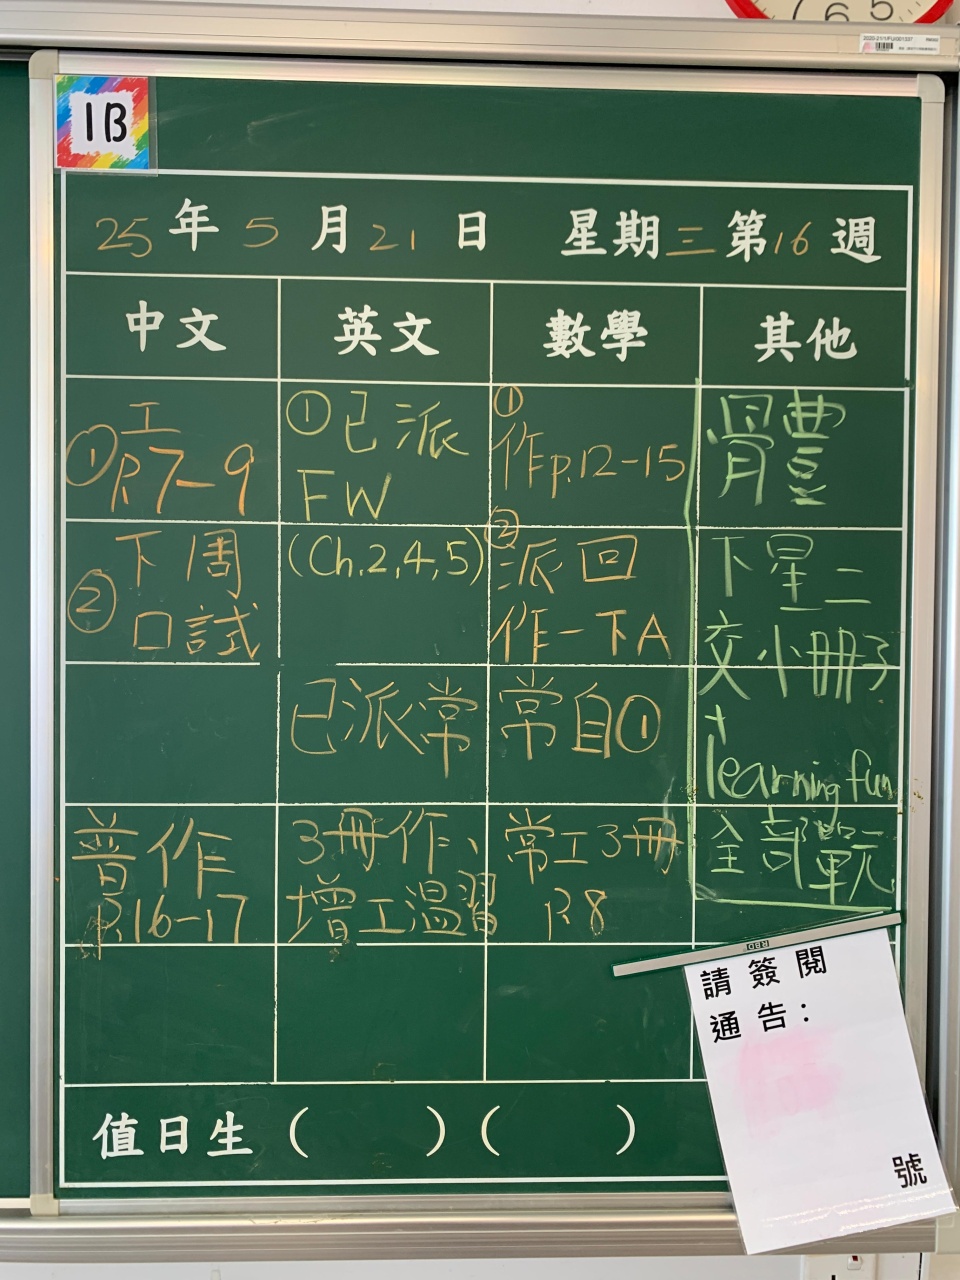 1B
25年5月21日 星期三第16週
中文 英文 數學 其他
工
①P.7-9
②下周
口試
普作
P.16-17
①已派
FW
(Ch.2,4,5)
已派常
3冊作、
增工溫習
①
作p.12-15
②
派回
作一下A
常自①
常工3冊
P.8
體
下星二
交小冊子
+
learning fun
全部單元
請簽閱
通告：
號
值日生( )( )
6 5